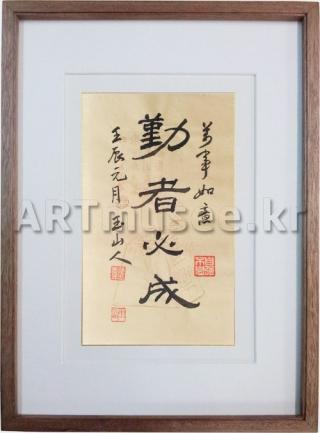 萬事如意
勤者必成
壬辰元月 玉山人
ARTmusee.kr